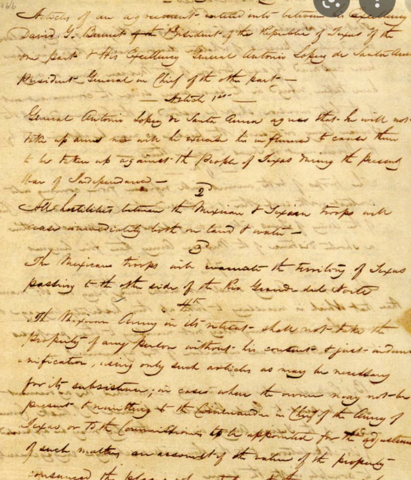 Articles of an agreement entered into between his Excellency
David G. Burnet President of the Republic of Texas of the
one part & His Excellency General Antonio Lopez de Santa Anna
President General in Chief of the other part —
Article 1st —
General Antonio Lopez de Santa Anna agrees that he will not
take up arms nor will he exercise his influence to cause them
to be taken up against the people of Texas during the present
War of Independence —
2d
All hostilities between the Mexican & Texian troops will
cease immediately both on land & water —
3d
The Mexican troops will evacuate the territory of Texas
passing to the other side of the Rio Grande del Norte
4th
The Mexican Army in its retreat shall not take the
property of any person without his consent & just indem
nification, using only such articles as may be necessary
for its subsistence, in cases where the owner may not be
present & remitting to the Commander in Chief of the Army of
Texas or to the Commissioners to be appointed for the adjustment
of such matters an account of the value of the property
consumed the place